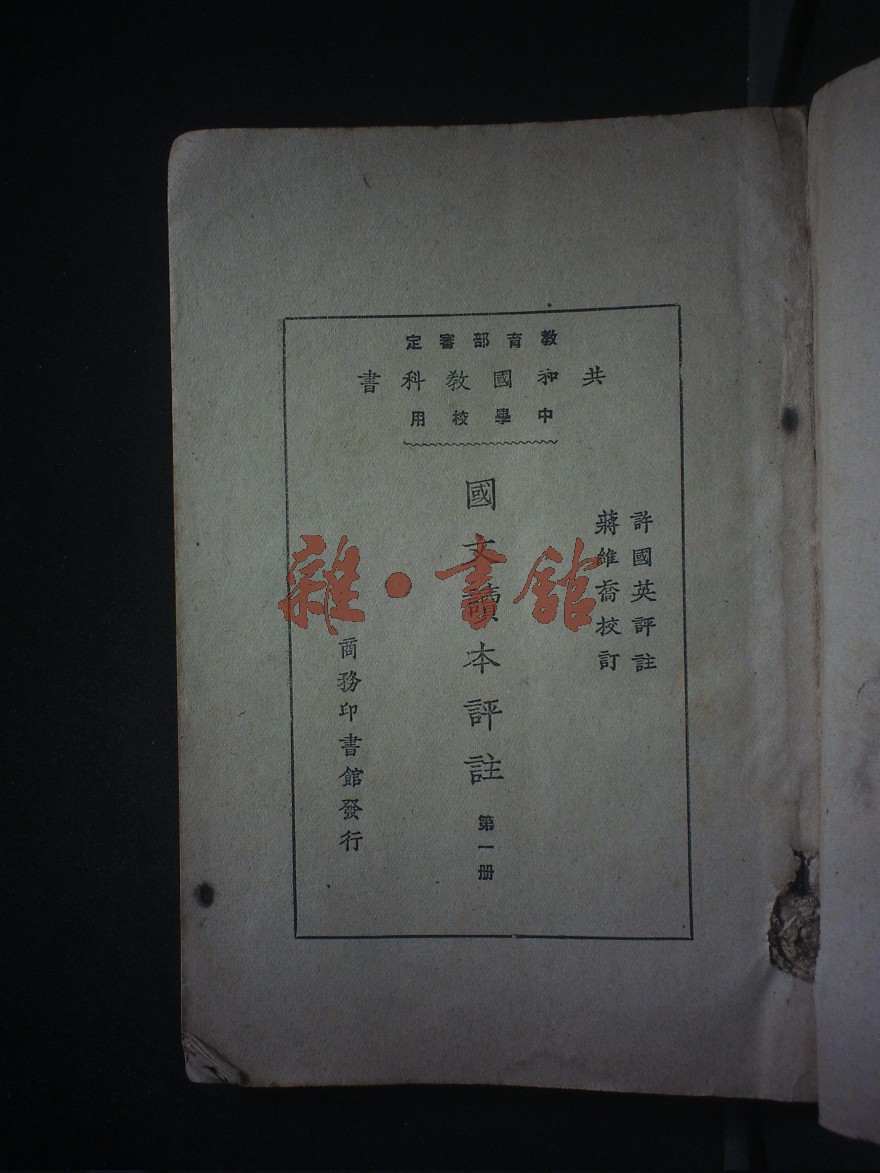 教育部審定
共和國教科書
中學校用
許國英評註
蔣維喬校訂
國文讀本評註
第一册
商務印書館發行
雜·書館